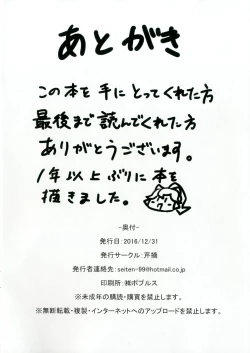 あとがき
この本を手にとってくれた方
最後まで読んでくれた方
ありがとうございます。
1年以上ぶりに本を
描きました。
-奥付-
発行日:2016/12/31
発行サークル:芹摘
発行者連絡先:seiten-99@hotmail.co.jp
印刷所:㈱ポプルス
※未成年の購読・購買を禁止します。
※無断転載・複製・インターネットへのアップロードを禁止します。